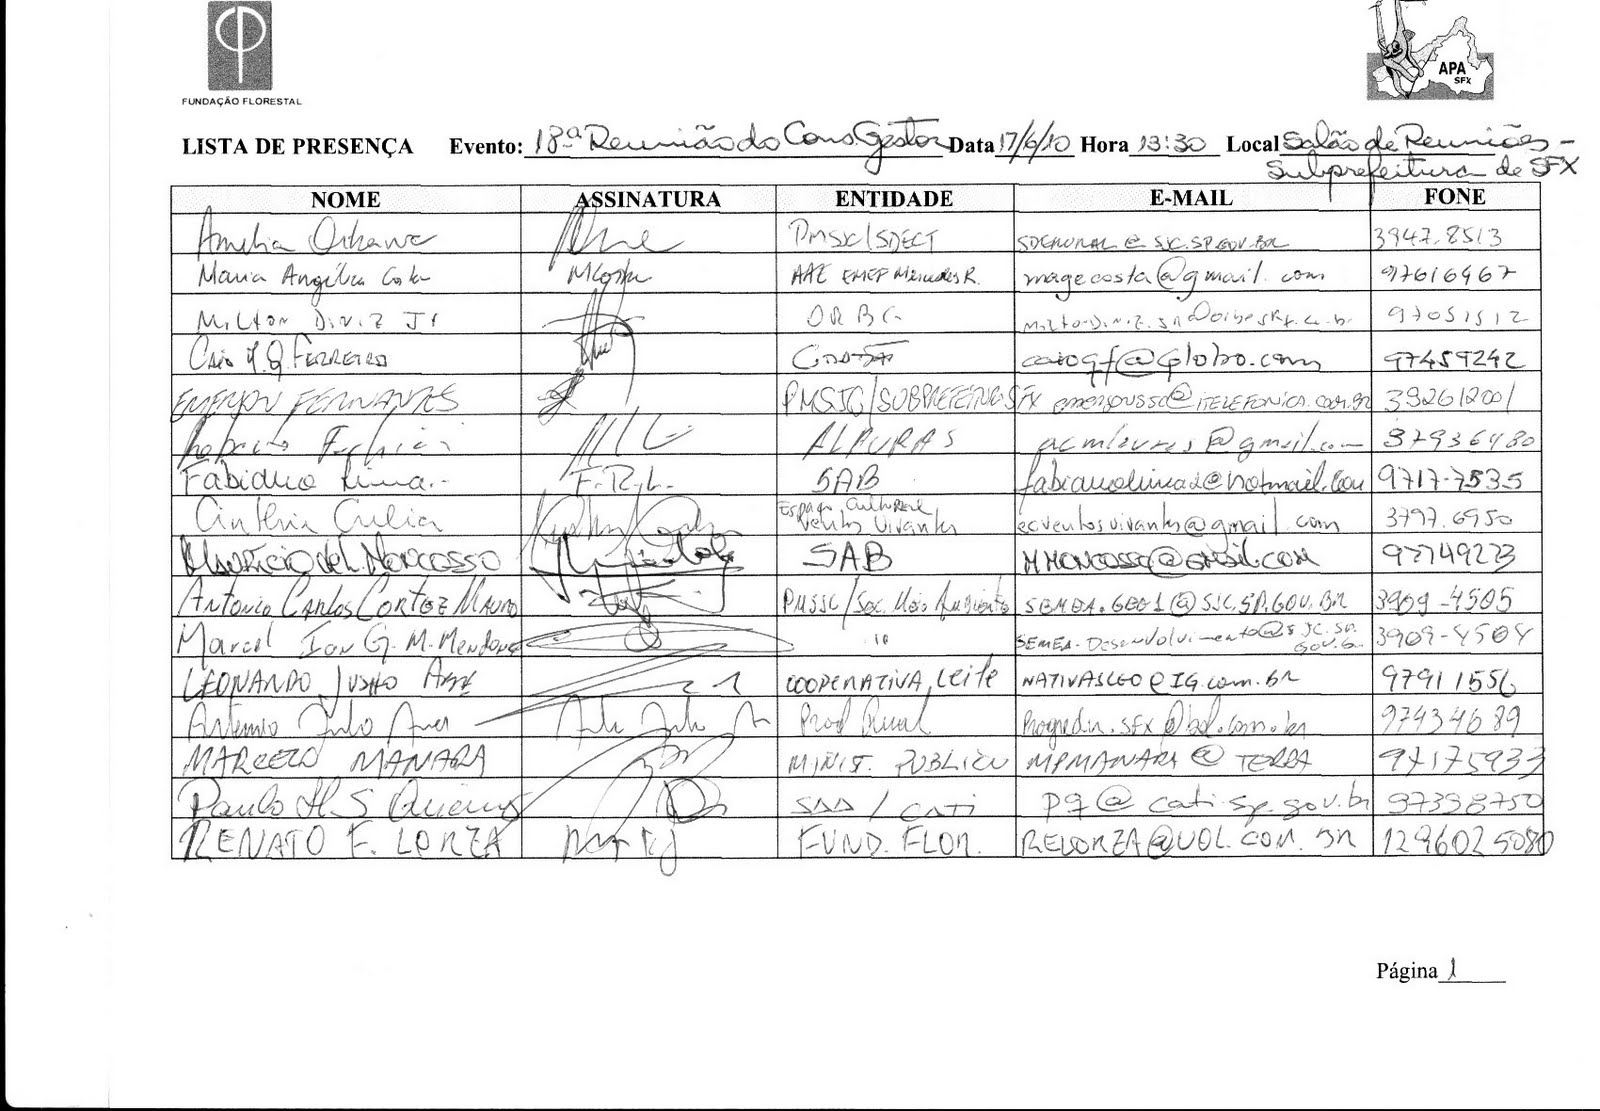 FUNDAÇÃO FLORESTAL
APA
SFX
LISTA DE PRESENÇA Evento: 18ª Reunião do Cons. Gestor Data 17/6/10 Hora 13:30 Local Salão de Reuniões -
Subprefeitura de SFX
NOME ASSINATURA ENTIDADE E-MAIL FONE
Amelia PMSJC/SDECT SDERURAL@SJC.SP.GOV.BR 3947.8513
Maria Angélica Costa MCosta AAE EMEF Mercedes R. magecosta@gmail.com 97616467
Milton Diniz Jr 97051512
Caio M.Q. FERREIRA caioqf@globo.com 97459242
EMERSON FERNANDES PMSJC/SUBPREFEITURA SFX 39261200
ALPURAS 37936480
Fabiano Lima F.R.L. SAB fabianolima2@hotmail.com 9717-7535
Cinthia Espaço Cultural
Ventos Vivantes ecventosvivantes@gmail.com 3797.6950
Mauricio de L. Moncosso SAB MMONCOSSO@GMAIL.COM 97749273
Antonio Carlos Cortez Mauro PMSJC/Sec. Meio Ambiente SEMEA.GEO1@SJC.SP.GOV.BR 3909-4505
Marcel Ivan G. M. Mendonç " SEMEA.Desenvolvimento@SJC.SP.
GOV.BR 3909-4504
LEONARDO JUSHO COOPERATIVA Leite NATIVASLEO@IG.COM.BR 97911556
Artemio Julho Prod Rural 97434689
MARCELO MANARA MINIST. PUBLICO MPMANARA@TERRA 97175933
Paulo H. S SAA / CATI pq@cati.sp.gov.br 97398750
RENATO F. LORZA FUND. FLOR. RELORZA@UOL.COM.BR 1296025080
Página 1